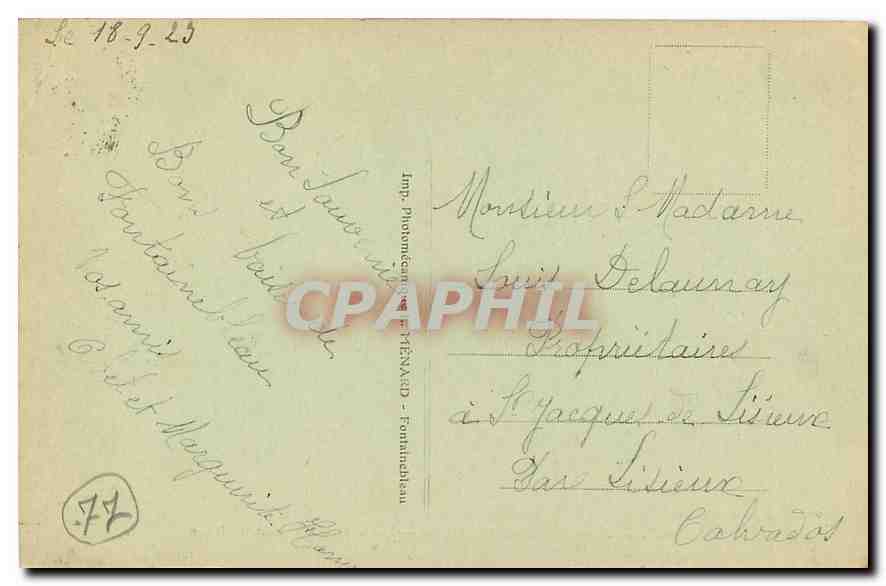 Le 18-9-23
Bon Souvenir
et baiser de
Bons
Fontainebleau
Vos amis
et Marguerite
Imp. Photomécanique L. MÉNARD - Fontainebleau
Monsieur & Madame
Louis Delaunay
Propriétaires
à St Jacques de Lisieux
Par Lisieux
Calvados
77
CPAPHIL